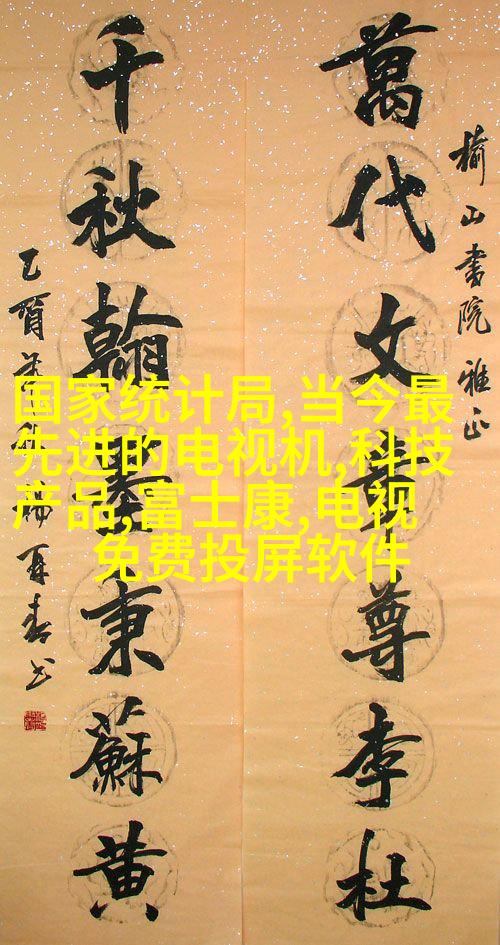 榆山書院雅正
萬代文章尊李杜
千秋翰墨秉蘇黄
乙酉 楊再春书
国家统计局,当今最
先进的电视机,科技
产品,富士康,电视
免费投屏软件